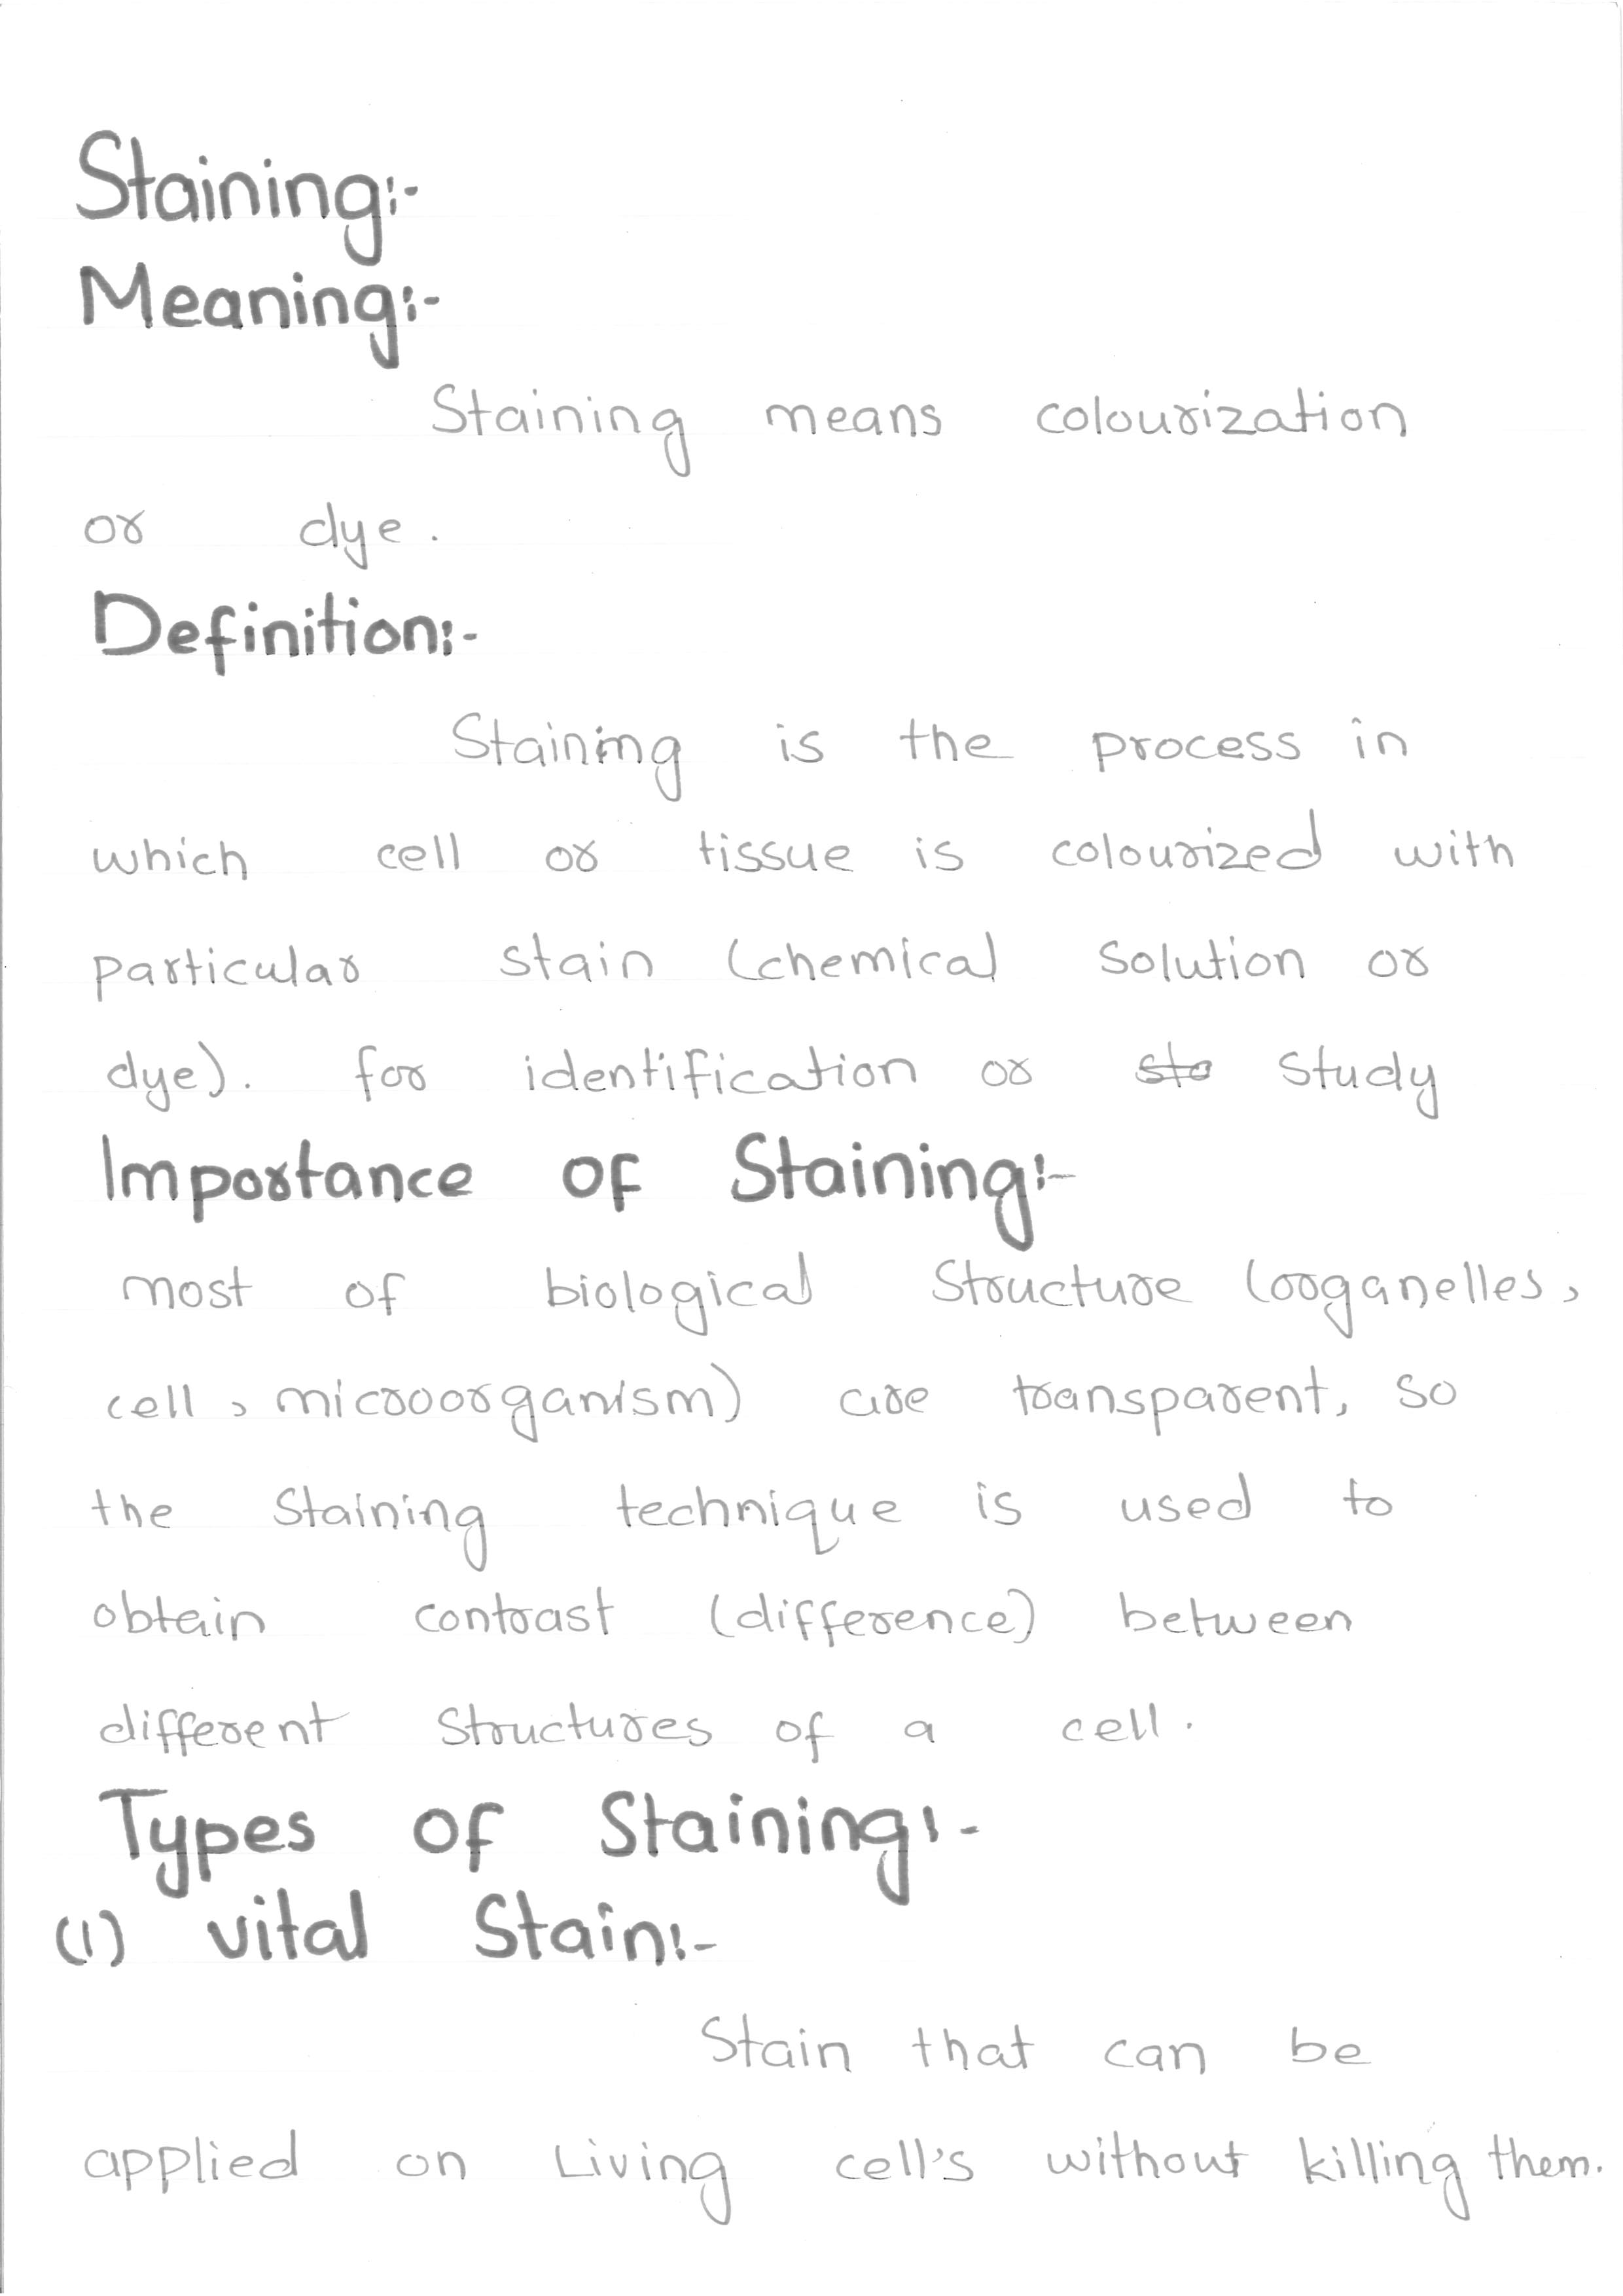 Staining:-
Meaning:-
Staining means colourization
or dye.
Definition:-
Staining is the process in
which cell or tissue is colourized with
particular stain (chemical solution or
dye). for identification or sto study
Importance of Staining:-
most of biological structure (organelles,
cell, microorganism) are transparent, so
the staining technique is used to
obtain contrast (difference) between
different structures of a cell.
Types of Staining:-
(1) vital Stain:-
Stain that can be
applied on Living cell's without killing them.